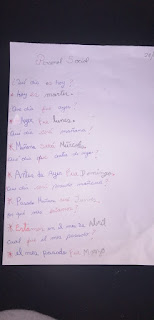 Personal Social
Qué día es hoy?
* Hoy es martes.
Que día fue ayer?
* Ayer fue lunes.
Que día será mañana?
* Mañana será Miércoles.
Que día fue antes de ayer?
* Antes de Ayer fue Domingo.
Que día será pasado mañana?
* Pasado Mañana será Jueves.
En qué mes estamos?
* Estamos en el mes de Abril
Cuál fue el mes pasado?
* el mes pasado fue Marzo